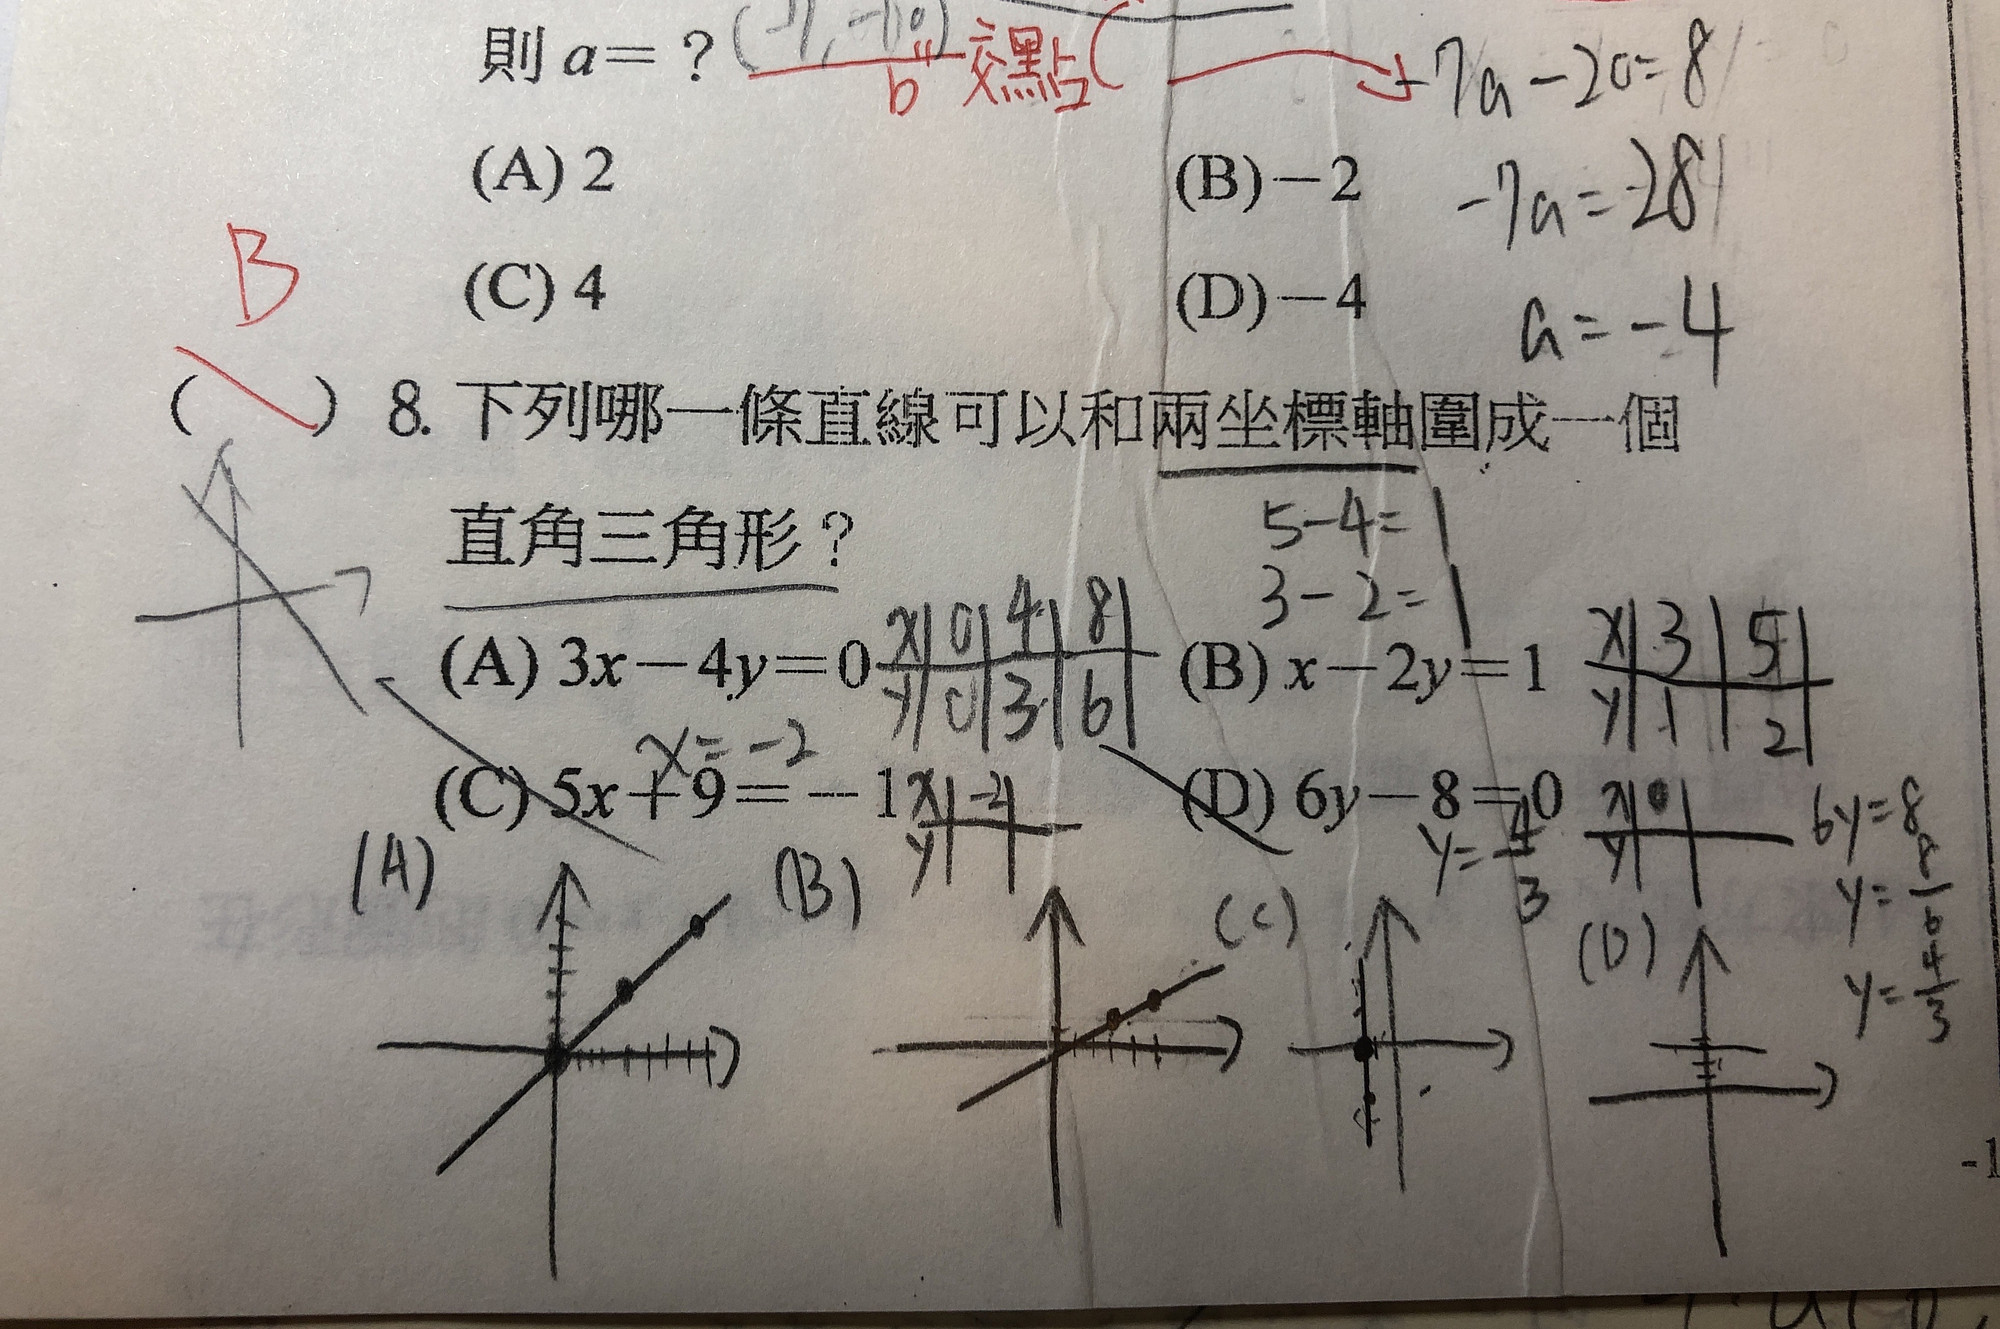 則 a=? (-7, -10) 交點(
b
-7a-20=8
(A) 2 (B)-2
-7a=28
(C) 4 (D)-4
a=-4
B
( ) 8. 下列哪一條直線可以和兩坐標軸圍成一個
直角三角形?
5-4=1
3-2=1
(A) 3x-4y=0 (B) x-2y=1
x 0 4 8
y 0 3 6
x 3 5
y 1 2
x=-2
(C) 5x+9=-1 (D) 6y-8=0
x -2
y
x 0
y
y=4/3
6y=8
y=8/6
y=4/3
(A) (B) (C) (D)
-1